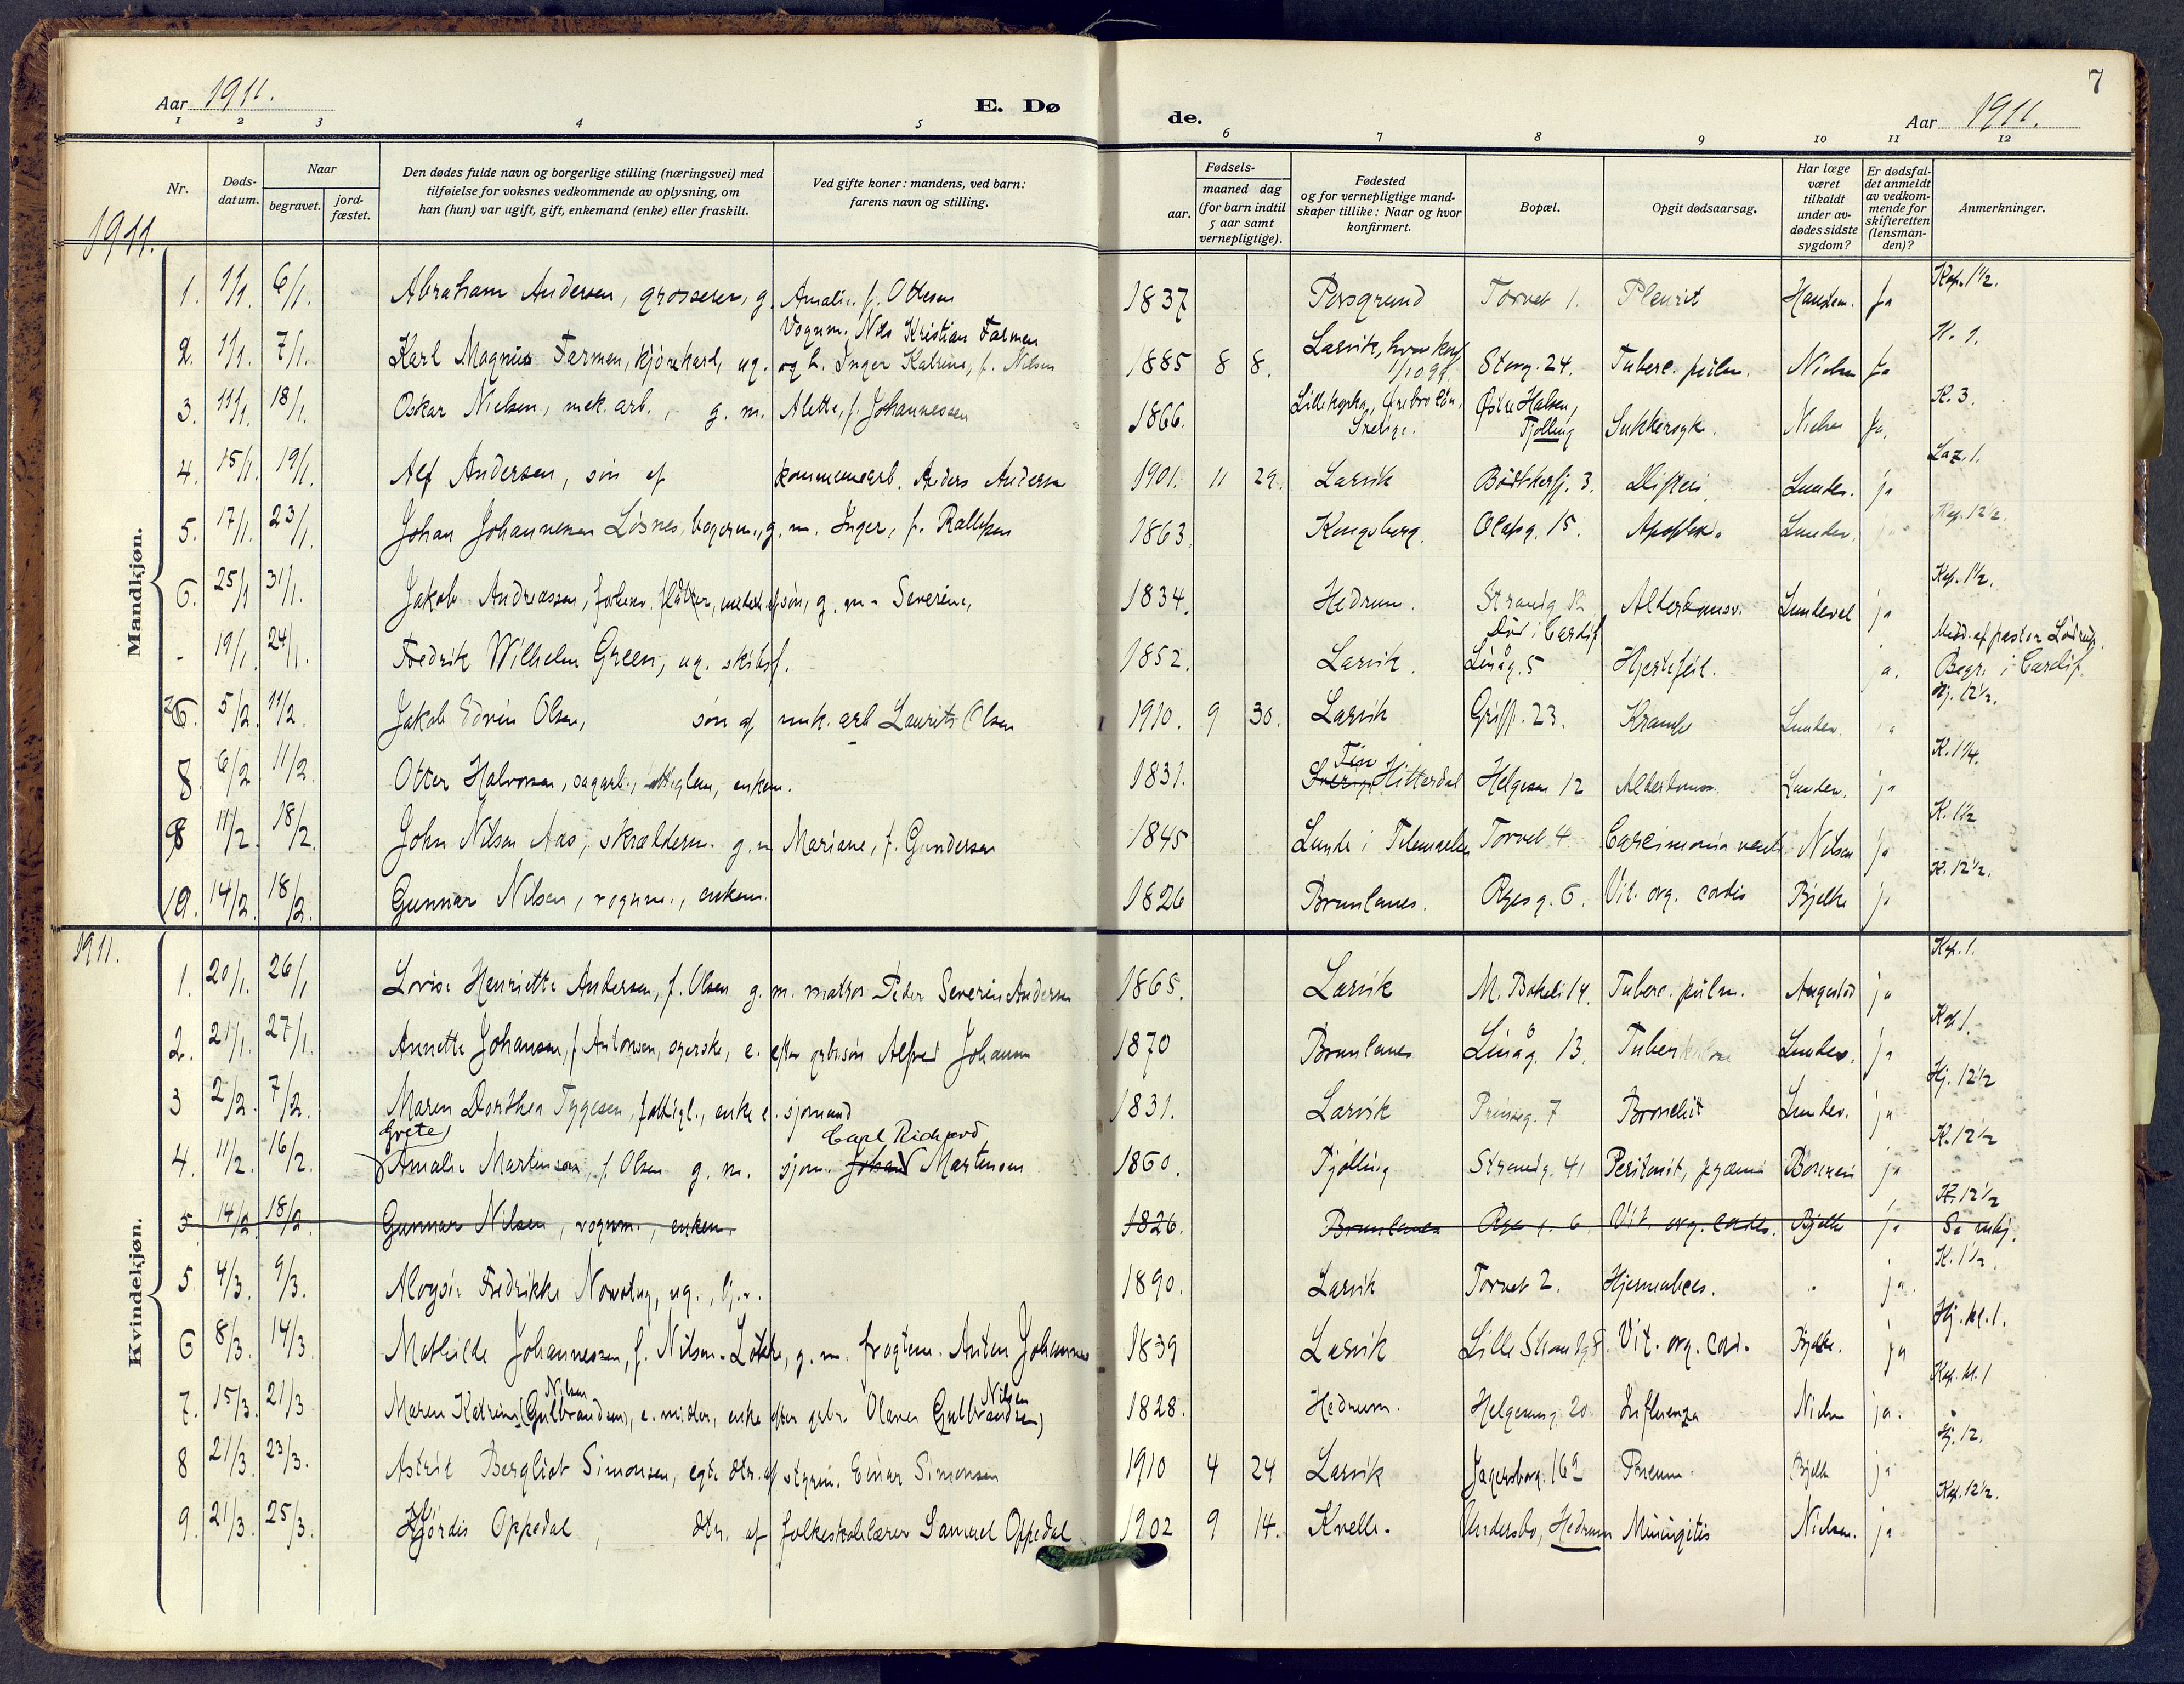 7
Aar 1911. E. Dø de. Aar 1911.
1 2 3 4 5 6 7 8 9 10 11 12
Nr. Døds-datum. Naar begravet. jord-fæstet. Den dødes fulde navn og borgerlige stilling (næringsvei) med tilføielse for voksnes vedkommende av oplysning, om han (hun) var ugift, gift, enkemand (enke) eller fraskilt. Ved gifte koner: mandens, ved barn: farens navn og stilling. Fødsels- aar. maaned dag (for barn indtil 5 aar samt vernepligtige). Fødested og for vernepligtige mandskaper tillike: Naar og hvor konfirmert. Bopæl. Opgit dødsaarsag. Har læge været tilkaldt under avdødes sidste sygdom? Er dødsfaldet anmeldt av vedkommende for skifteretten (lensmanden)? Anmerkninger.
1911.
Mandkjøn.
1. 1/1. 6/1. Abraham Andersen, grosserer, g. Amalie f. Ottesen 1837 Porsgrund Torvet 1. Pleurit Ja Kap. 1 1/2.
2. 1/1. 7/1. Karl Magnus Farmen, kjørekarl, ug. Vognm. Nils Kristian Farmen og h. Inger Katrine, f. Nilsen 1885 8 8. Larvik, hvor konf. 1/10 99. Storg. 24. Tuberc. pulm. Nielsen Ja K. 1.
3. 11/1. 18/1. Oskar Nielsen, mek. arb., g. m. Alette, f. Johannessen 1866. Ørebro län, Sverige. Østre Halsen, Tjølling Sukkersyke. Nielsen Ja. K. 3.
4. 15/1. 19/1. Alf Andersen, søn af kommunearb. Anders Andersen 1901. 11 29. Larvik 3. Difteri. Lunder. ja Laz. 1.
5. 17/1. 23/1. Johan Johannesen Løsnes, bagerm., g. m. Inger, f. 1863. Kongsberg. Olafsg. 15. Apopleks. Lunder. Kap. 12 1/2.
6. 25/1 31/1. Jakob Andreassen, flåtter, søn, g. m. Severine, 1834. Hedrum. Strandg. Alderdomssv. ja Kap. 1 1/2.
- 19/1. 24/1. Fredrik Wilhelm Green, ug. skibsf. 1852. Larvik. Død i Cardif Linåg. 5 Hjertefeil. ja. Medd. af pastor Begr. i Cardif.
7. 5/2. 11/2. Jakob Edvin Olsen, søn af mek. arb Laurits Olsen 1910. 9 30. Larvik 23. Krampe Lunder. Hj. 12 1/2.
8. 6/2 11/2. Otter Halvorsen, sagarb., enkem. 1831. Hitterdal Helgesen 12 Alderdomssv. Lunder. ja K. 1 1/4.
9 11/2. 18/2. John Nilsen Aas, skrædderm. g. m Mariane, f. Gundersen 1845 Lunde i Telemarken Torvet 4. Nilsen ja K. 1 1/2
10. 14/2. 18/2. Gunnar Nilsen, vognm., enkem. 1826 Brunlanes. 6. Vit. org. cordis Bjelke ja K. 12 1/2.
1911.
Kvindekjøn.
1. 20/1. 26/1 Lovise Henriette Andersen, f. Olsen g. m. matros Peder Severin Andersen 1865. Larvik M. Bøkeli 14. Tuberc. pulm. Augestad ja Kap. 1.
2. 21/1. 27/1. Annette Johansen, f Antonsen, syerske, e. efter arb. søn Alfred Johansen 1870 Brunlanes Linåg. 13. Tuberkulose Lunder. ja Kap 1.
3 2/2. 7/2. Maren Dorthea Tygesen, fattigl., enke e. sjømand 1831. Larvik Prinseg. 7 Bronchit Lunder. ja Hj. 12 1/2
4. 11/2. 16/2. (Grete) Amalie Martinsen, f. Olsen g. m. sjøm. Johan Carl Richard Martensen 1860. Tjølling Strandg. 41 Peritonit, pyæmi ja K. 12 1/2
5. 14/2 18/2 Gunnar Nilsen, vognm., enkem. 1826. Brunlanes 6 Vit. org. cordis. Bjelke ja K. 12 1/2 Se mkj.
5 4/3. 9/3. Aloysie Fredrikke ug., 1890. Larvik Torvet 2. Hjerneabces. ja. K. 1 1/2.
6 8/3. 14/3. Mathilde Johannessen, f. Nilsen-Løkke, g. m. fragtem. Anton Johannes 1839 Larvik Lille Strandg 8. Vit. org. cord. Bjelke. ja Hj. kl. 1.
7. 15/3. 21/3 Maren Katrine (Gulbrandsen) Nilsen, enke efter arb. Olaves (Gulbrandsen) Nilsen 1828. Hedrum. Helgesensg. 20. Influenza Nielsen ja. Kap. kl. 1
8 21/3. 23/3. Astrid Bergliot Simonsen, egte dtr. af styrm. Einar Simonsen 1910 4 24 Larvik Jagersborg. 16a Pneum. Bjelke ja Hj. 12.
9. 21/3. 25/3. Hjørdis Oppedal, dtr. af folkeskolelærer Samuel Oppedal 1902 9 14. Kvelle. Andersbo, Hedrum Miningitis Nielsen. ja Kap. 12 1/2.